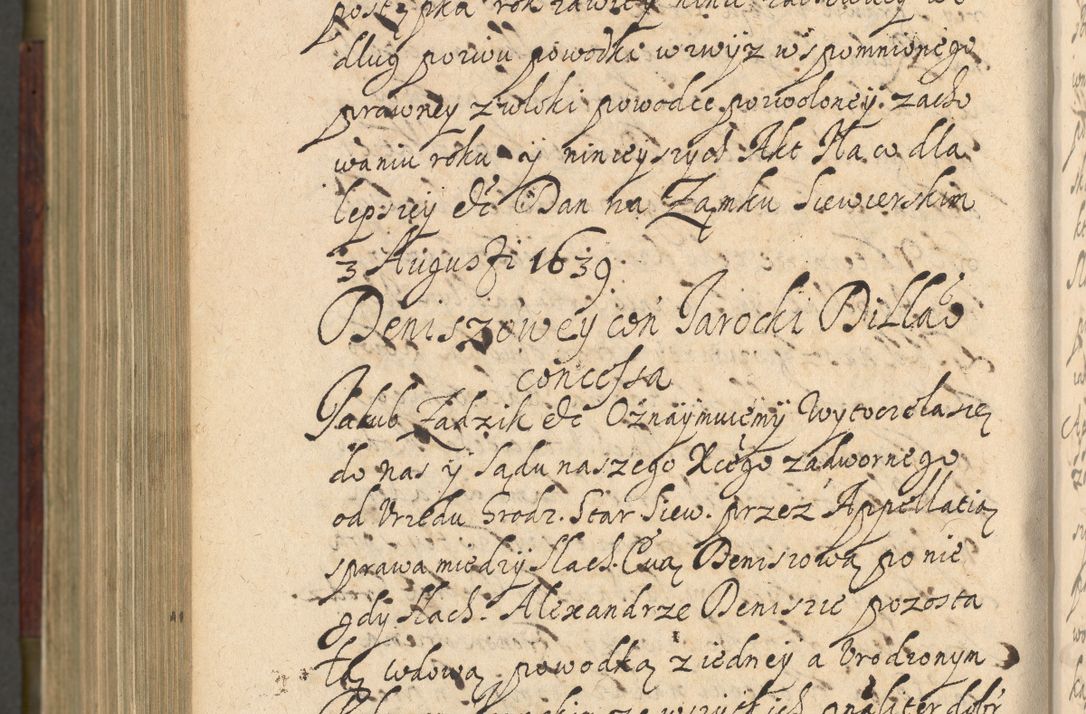 dlug pozwu powodki wzwyz wspomnionego
prawney zwloki powodce pozwoloney. zacho
waniu roku y ninieyszych Akt Na cο dla
lepszey etc Dan na Zamku Siewierskim
3 Augusti 1639.
Beniszowey con Jarocki Dillao
concessa
Jakub Zadzik etc Oznaymuiemy Wytoczela się
do nas y sądu naszego Xcego zadwornego
od Urzedu Grodz. Star Siew. przez Appellatią
sprawa miedzy slach. Ewą Beniszową po nie
gdy slach. Alexandrze Beniszie pozosta
łą wdową powodką z iedney a Urodzonym